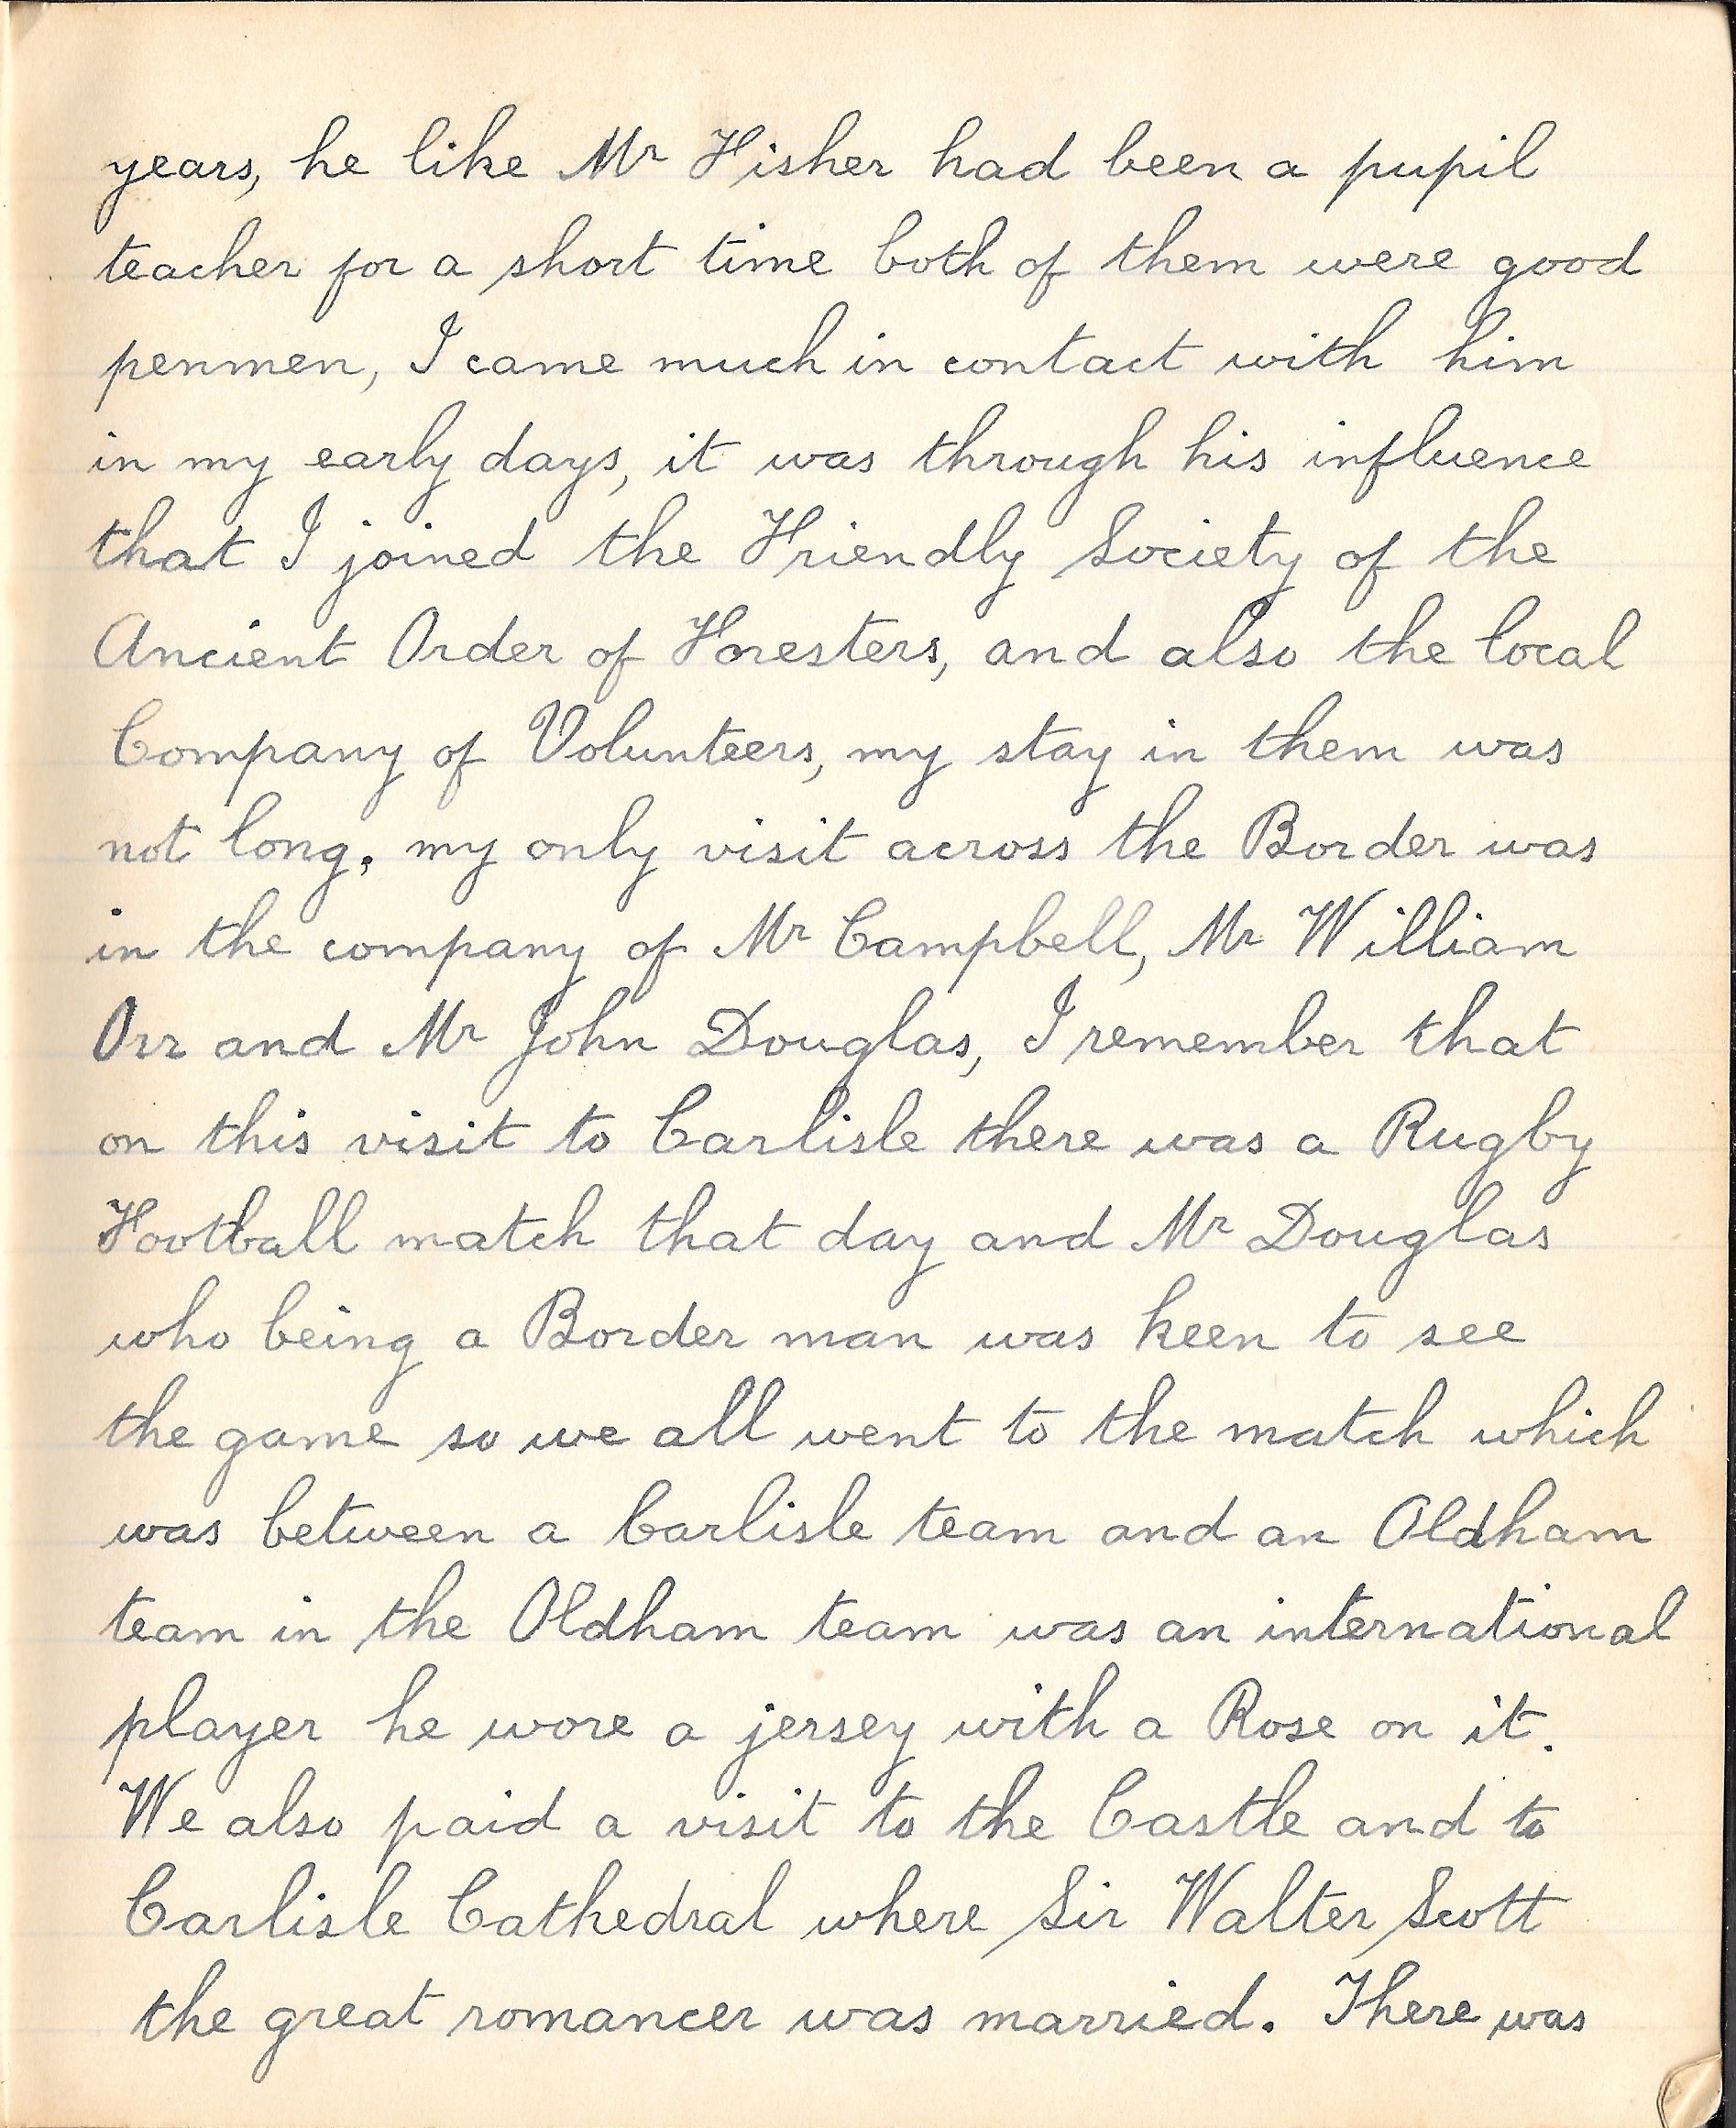 years, he like Mr Fisher had been a pupil
teacher for a short time both of them were good
penmen, I came much in contact with him
in my early days, it was through his influence
that I joined the Friendly Society of the
Ancient Order of Foresters, and also the local
Company of Volunteers, my stay in them was
not long, my only visit across the Border was
in the company of Mr Campbell, Mr William
Orr and Mr John Douglas, I remember that
on this visit to Carlisle there was a Rugby
Football match that day and Mr Douglas
who being a Border man was keen to see
the game so we all went to the match which
was between a Carlisle team and an Oldham
team in the Oldham team was an international
player he wore a jersey with a Rose on it.
We also paid a visit to the Castle and to
Carlisle Cathedral where Sir Walter Scott
the great romancer was married. There was